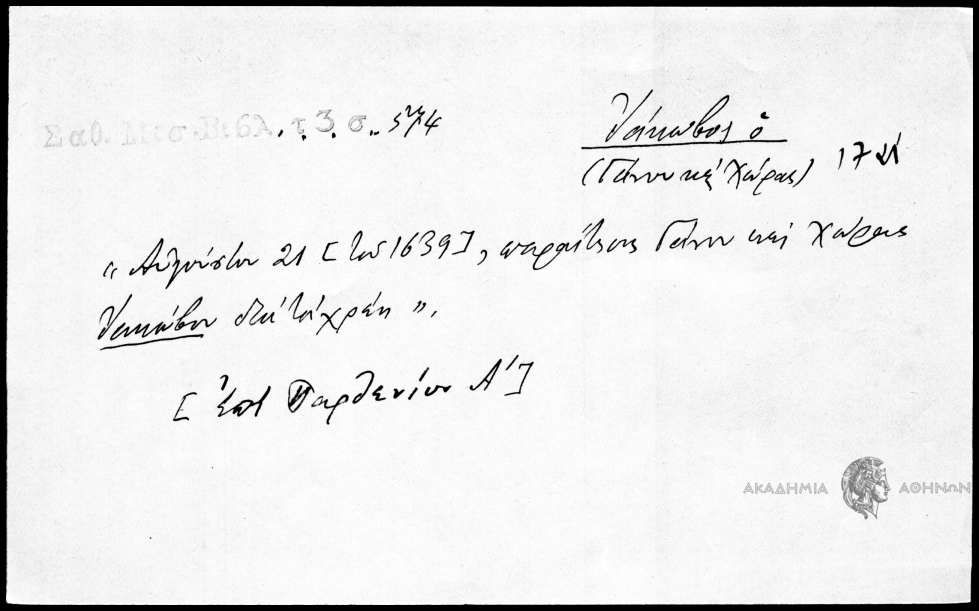 Σαθ. Μεσ. Βιβλ. τ 3 σ. 574
Ἰάκωβος ὁ
(Γάνου καὶ Χώρας) 17
"Αὐγούστου 21 [τοῦ 1639], παραίτησις Γάνου καὶ Χώρας
Ἰακώβου διὰ τὰ χρέη".
[ἐπὶ Παρθενίου Α']
ΑΚΑΔΗΜΙΑ ΑΘΗΝΩΝ